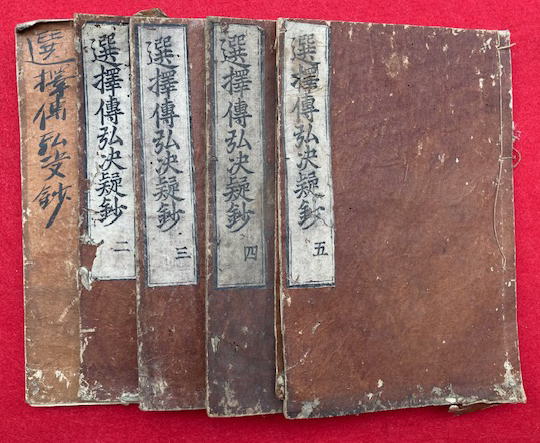 選擇傳弘决鈔
選擇傳弘决疑鈔 二
選擇傳弘决疑鈔 三
選擇傳弘决疑鈔 四
選擇傳弘决疑鈔 五